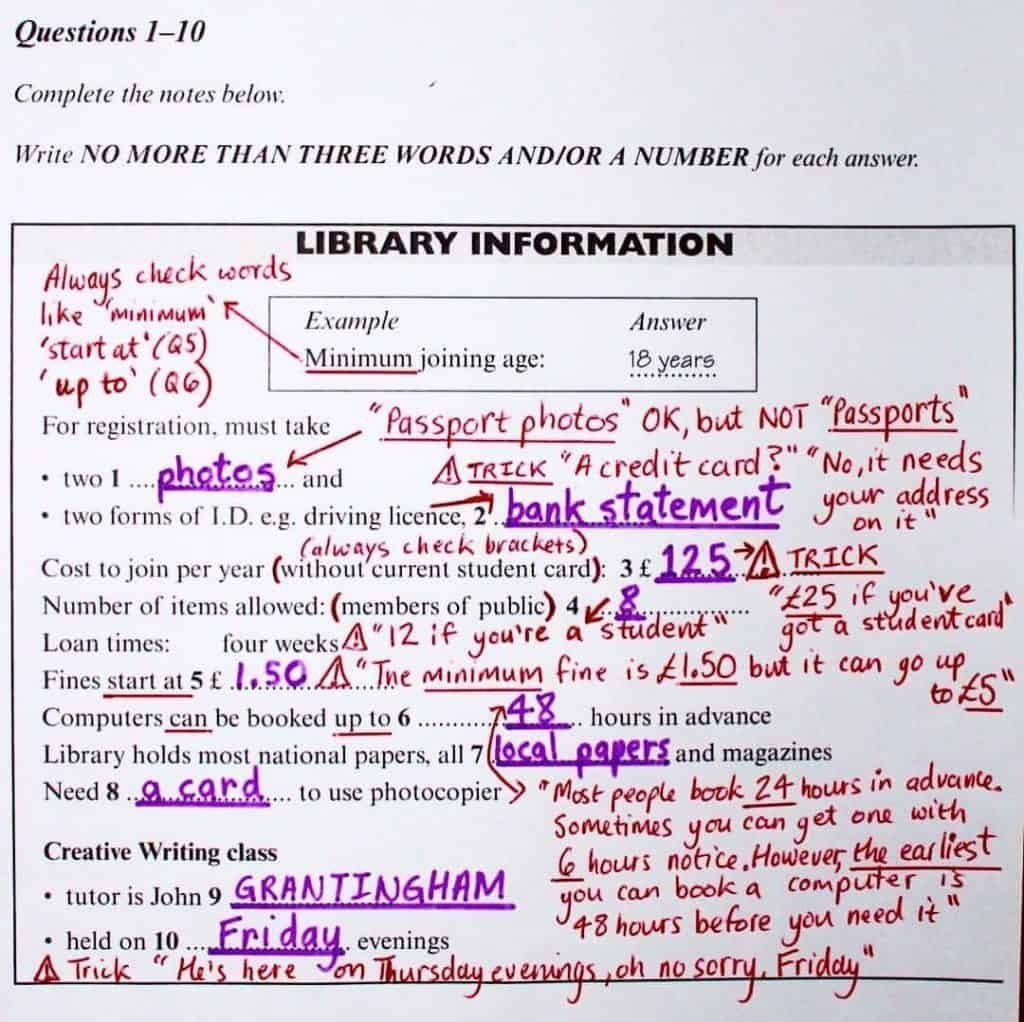 Questions 1–10
Complete the notes below.
Write NO MORE THAN THREE WORDS AND/OR A NUMBER for each answer.
LIBRARY INFORMATION
Always check words
like 'minimum'
'start at' (Q5)
'up to' (Q6)
Example Answer
Minimum joining age: 18 years
For registration, must take
"Passport photos" OK, but NOT "Passports"
• two 1 ....photos... and
⚠ TRICK "A credit card?" "No, it needs
your address
on it"
• two forms of I.D. e.g. driving licence, 2 ..bank statement
(always check brackets)
Cost to join per year (without current student card): 3 £ 125 → ⚠ TRICK
"£25 if you've
got a student card"
Number of items allowed: (members of public) 4 ...8...............
Loan times: four weeks ⚠ "12 if you're a student"
Fines start at 5 £ .1.50 ⚠ "The minimum fine is £1.50 but it can go up
to £5"
Computers can be booked up to 6 ............48... hours in advance
Library holds most national papers, all 7 local papers and magazines
Need 8 ..a card.... to use photocopier
"Most people book 24 hours in advance.
Sometimes you can get one with
6 hours notice. However, the earliest
you can book a computer is
48 hours before you need it"
Creative Writing class
• tutor is John 9 GRANTINGHAM
• held on 10 ....Friday. evenings
⚠ Trick "He's here on Thursday evenings, oh no sorry, Friday"